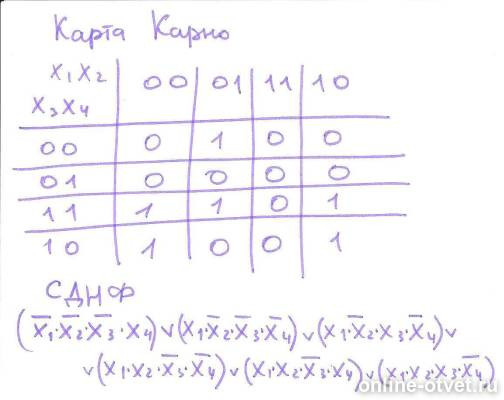 Карта Карно
X₁X₂ 00 01 11 10
X₃X₄
00 0 1 0 0
01 0 0 0 0
11 1 1 0 1
10 1 0 0 1
СДНФ
(X̄₁·X̄₂·X̄₃·X₄)∨(X₁·X̄₂·X̄₃·X̄₄)∨(X₁·X̄₂·X₃·X̄₄)∨
∨(X₁·X₂·X̄₃·X̄₄)∨(X₁·X₂·X̄₃·X₄)∨(X₁·X₂·X₃·X̄₄)
online-otvet.ru